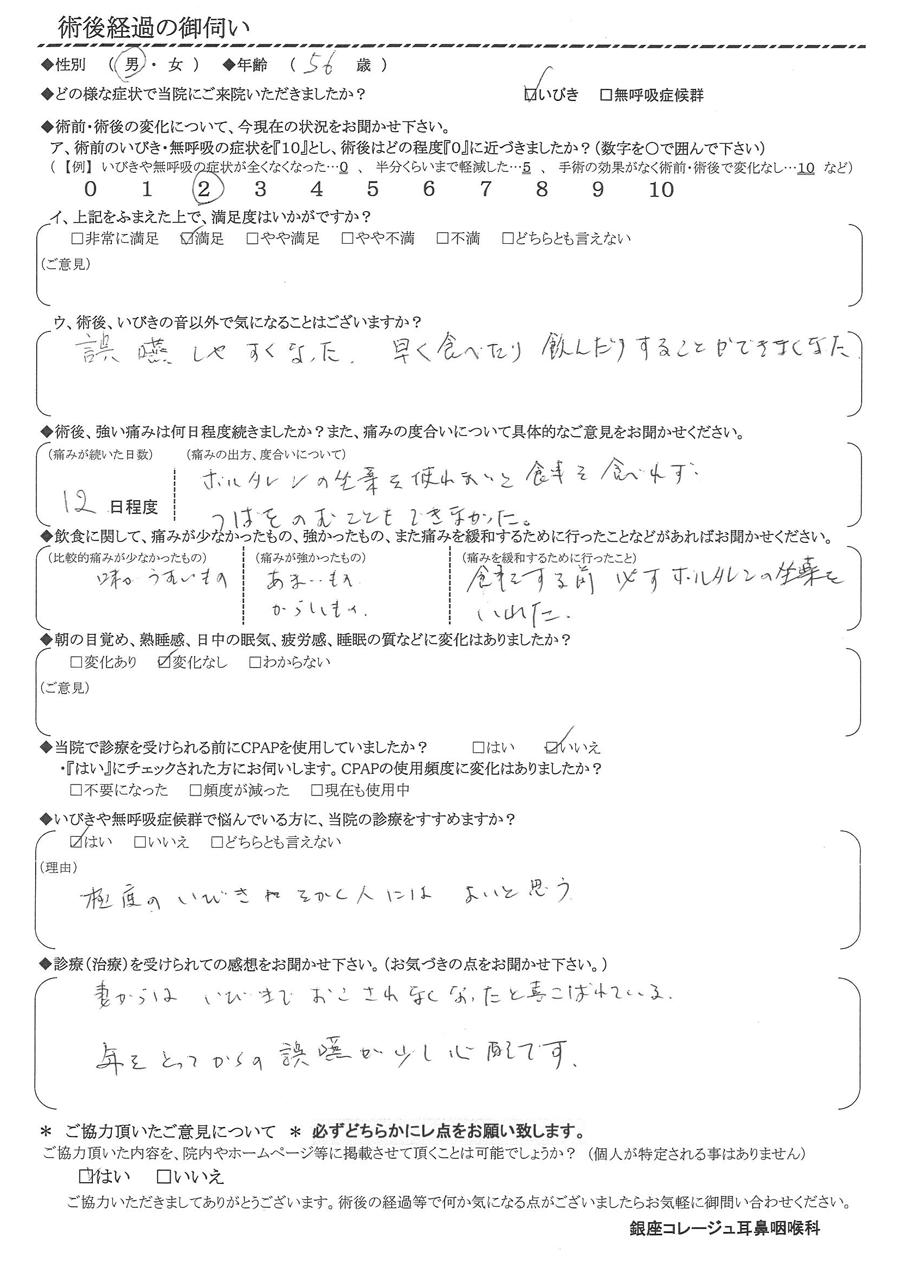 術後経過の御伺い
◆性別 （ 男 ・ 女 ） ◆年齢 （ 56 歳 ）
◆どの様な症状で当院にご来院いただきましたか？ ☑いびき □無呼吸症候群
◆術前・術後の変化について、今現在の状況をお聞かせ下さい。
ア、術前のいびき・無呼吸の症状を『10』とし、術後はどの程度『0』に近づきましたか？（数字を○で囲んで下さい）
（【例】 いびきや無呼吸の症状が全くなくなった…0 、 半分くらいまで軽減した…5 、 手術の効果がなく術前・術後で変化なし…10 など）
0 1 2 3 4 5 6 7 8 9 10
イ、上記をふまえた上で、満足度はいかがですか？
□非常に満足 ☑満足 □やや満足 □やや不満 □不満 □どちらとも言えない
（ご意見）
ウ、術後、いびきの音以外で気になることはございますか？
誤嚥しやすくなった. 早く食べたり飲んだりすることができなくなった.
◆術後、強い痛みは何日程度続きましたか？また、痛みの度合いについて具体的なご意見をお聞かせください。
（痛みが続いた日数） （痛みの出方、度合いについて）
ボルタレンの坐薬を使わないと食事を食べれず.
12 日程度
つばをのむこともできなかった。
◆飲食に関して、痛みが少なかったもの、強かったもの、また痛みを緩和するために行ったことなどがあればお聞かせください。
（比較的痛みが少なかったもの） （痛みが強かったもの） （痛みを緩和するために行ったこと）
味がうすいもの あまいもの 食事をする前必ずボルタレンの坐薬を
からいもの. いれた.
◆朝の目覚め、熟睡感、日中の眠気、疲労感、睡眠の質などに変化はありましたか？
□変化あり ☑変化なし □わからない
（ご意見）
◆当院で診療を受けられる前にCPAPを使用していましたか？ □はい ☑いいえ
・『はい』にチェックされた方にお伺いします。CPAPの使用頻度に変化はありましたか？
□不要になった □頻度が減った □現在も使用中
◆いびきや無呼吸症候群で悩んでいる方に、当院の診療をすすめますか？
☑はい □いいえ □どちらとも言えない
（理由）
極度のいびきを 人には よいと思う
◆診療（治療）を受けられての感想をお聞かせ下さい。（お気づきの点をお聞かせ下さい。）
妻からは いびきでおこされなくなったと喜こばれている.
年をとってからの誤嚥が少し心配です.
＊ ご協力頂いたご意見について ＊ 必ずどちらかにレ点をお願い致します。
ご協力頂いた内容を、院内やホームページ等に掲載させて頂くことは可能でしょうか？ （個人が特定される事はありません）
☑はい □いいえ
ご協力いただきましてありがとうございます。術後の経過等で何か気になる点がございましたらお気軽に御問い合わせください。
銀座コレージュ耳鼻咽喉科